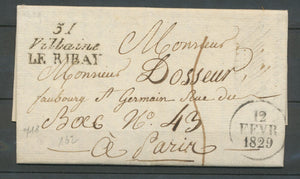 51
Vilhaine
LE RIBAY
Monsieur
Monsieur Dosseur
faubourg St Germain Rue du
Bacq No. 43
à Paris
12
FEVR
1829